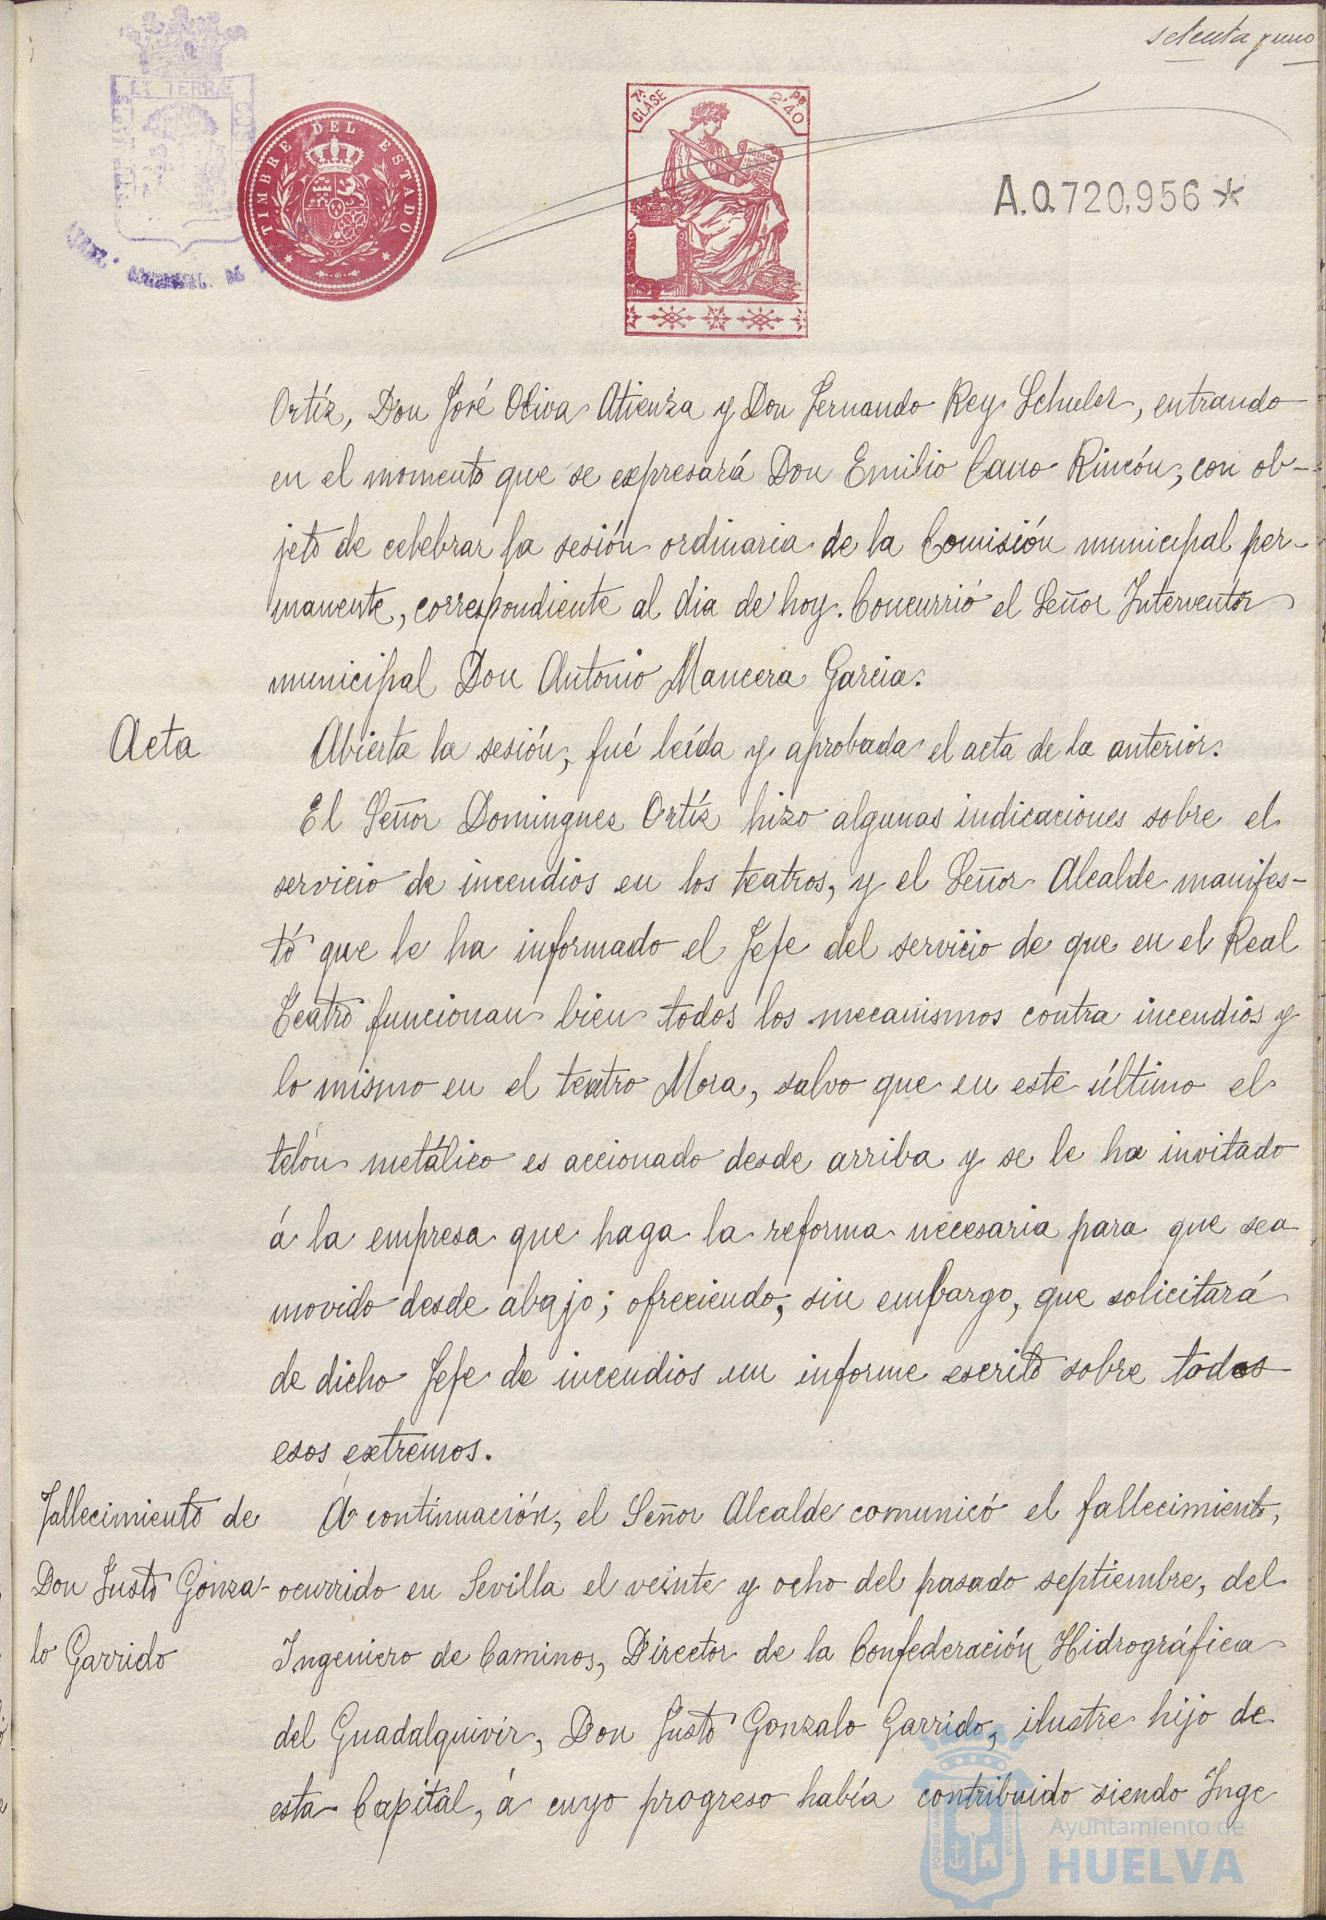 setenta y uno
TIMBRE DEL ESTADO
7ª CLASE
2'40
A.0.720,956*
Ortíz, Don José Oliva Atienza y Don Fernando Rey Schuler, entrando
en el momento que se expresará Don Emilio Cano Rincón, con ob-
jeto de celebrar la sesión ordinaria de la Comisión municipal per-
manente, correspondiente al dia de hoy. Concurrió el Señor Interventor
municipal Don Antonio Mancera Garcia.
Acta
Abierta la sesión, fué leída y aprobada el acta de la anterior.
El Señor Dominguez Ortíz hizo algunas indicaciones sobre el
servicio de incendios en los teatros, y el Señor Alcalde manifes-
tó que le ha informado el Jefe del servicio de que en el Real
Teatro funcionan bien todos los mecanismos contra incendios y
lo mismo en el teatro Mora, salvo que en este último el
telón metálico es accionado desde arriba y se le ha invitado
á la empresa que haga la reforma necesaria para que sea
movido desde abajo; ofreciendo, sin embargo, que solicitará
de dicho Jefe de incendios un informe escrito sobre todos
esos extremos.
Fallecimiento de
Don Justo Gonza-
lo Garrido
A continuación, el Señor Alcalde comunicó el fallecimiento,
ocurrido en Sevilla el veinte y ocho del pasado septiembre, del
Ingeniero de Caminos, Director de la Confederación Hidrográfica
del Guadalquivir, Don Justo Gonzalo Garrido, ilustre hijo de
esta Capital, á cuyo progreso había contribuido siendo Inge
Ayuntamiento de
HUELVA